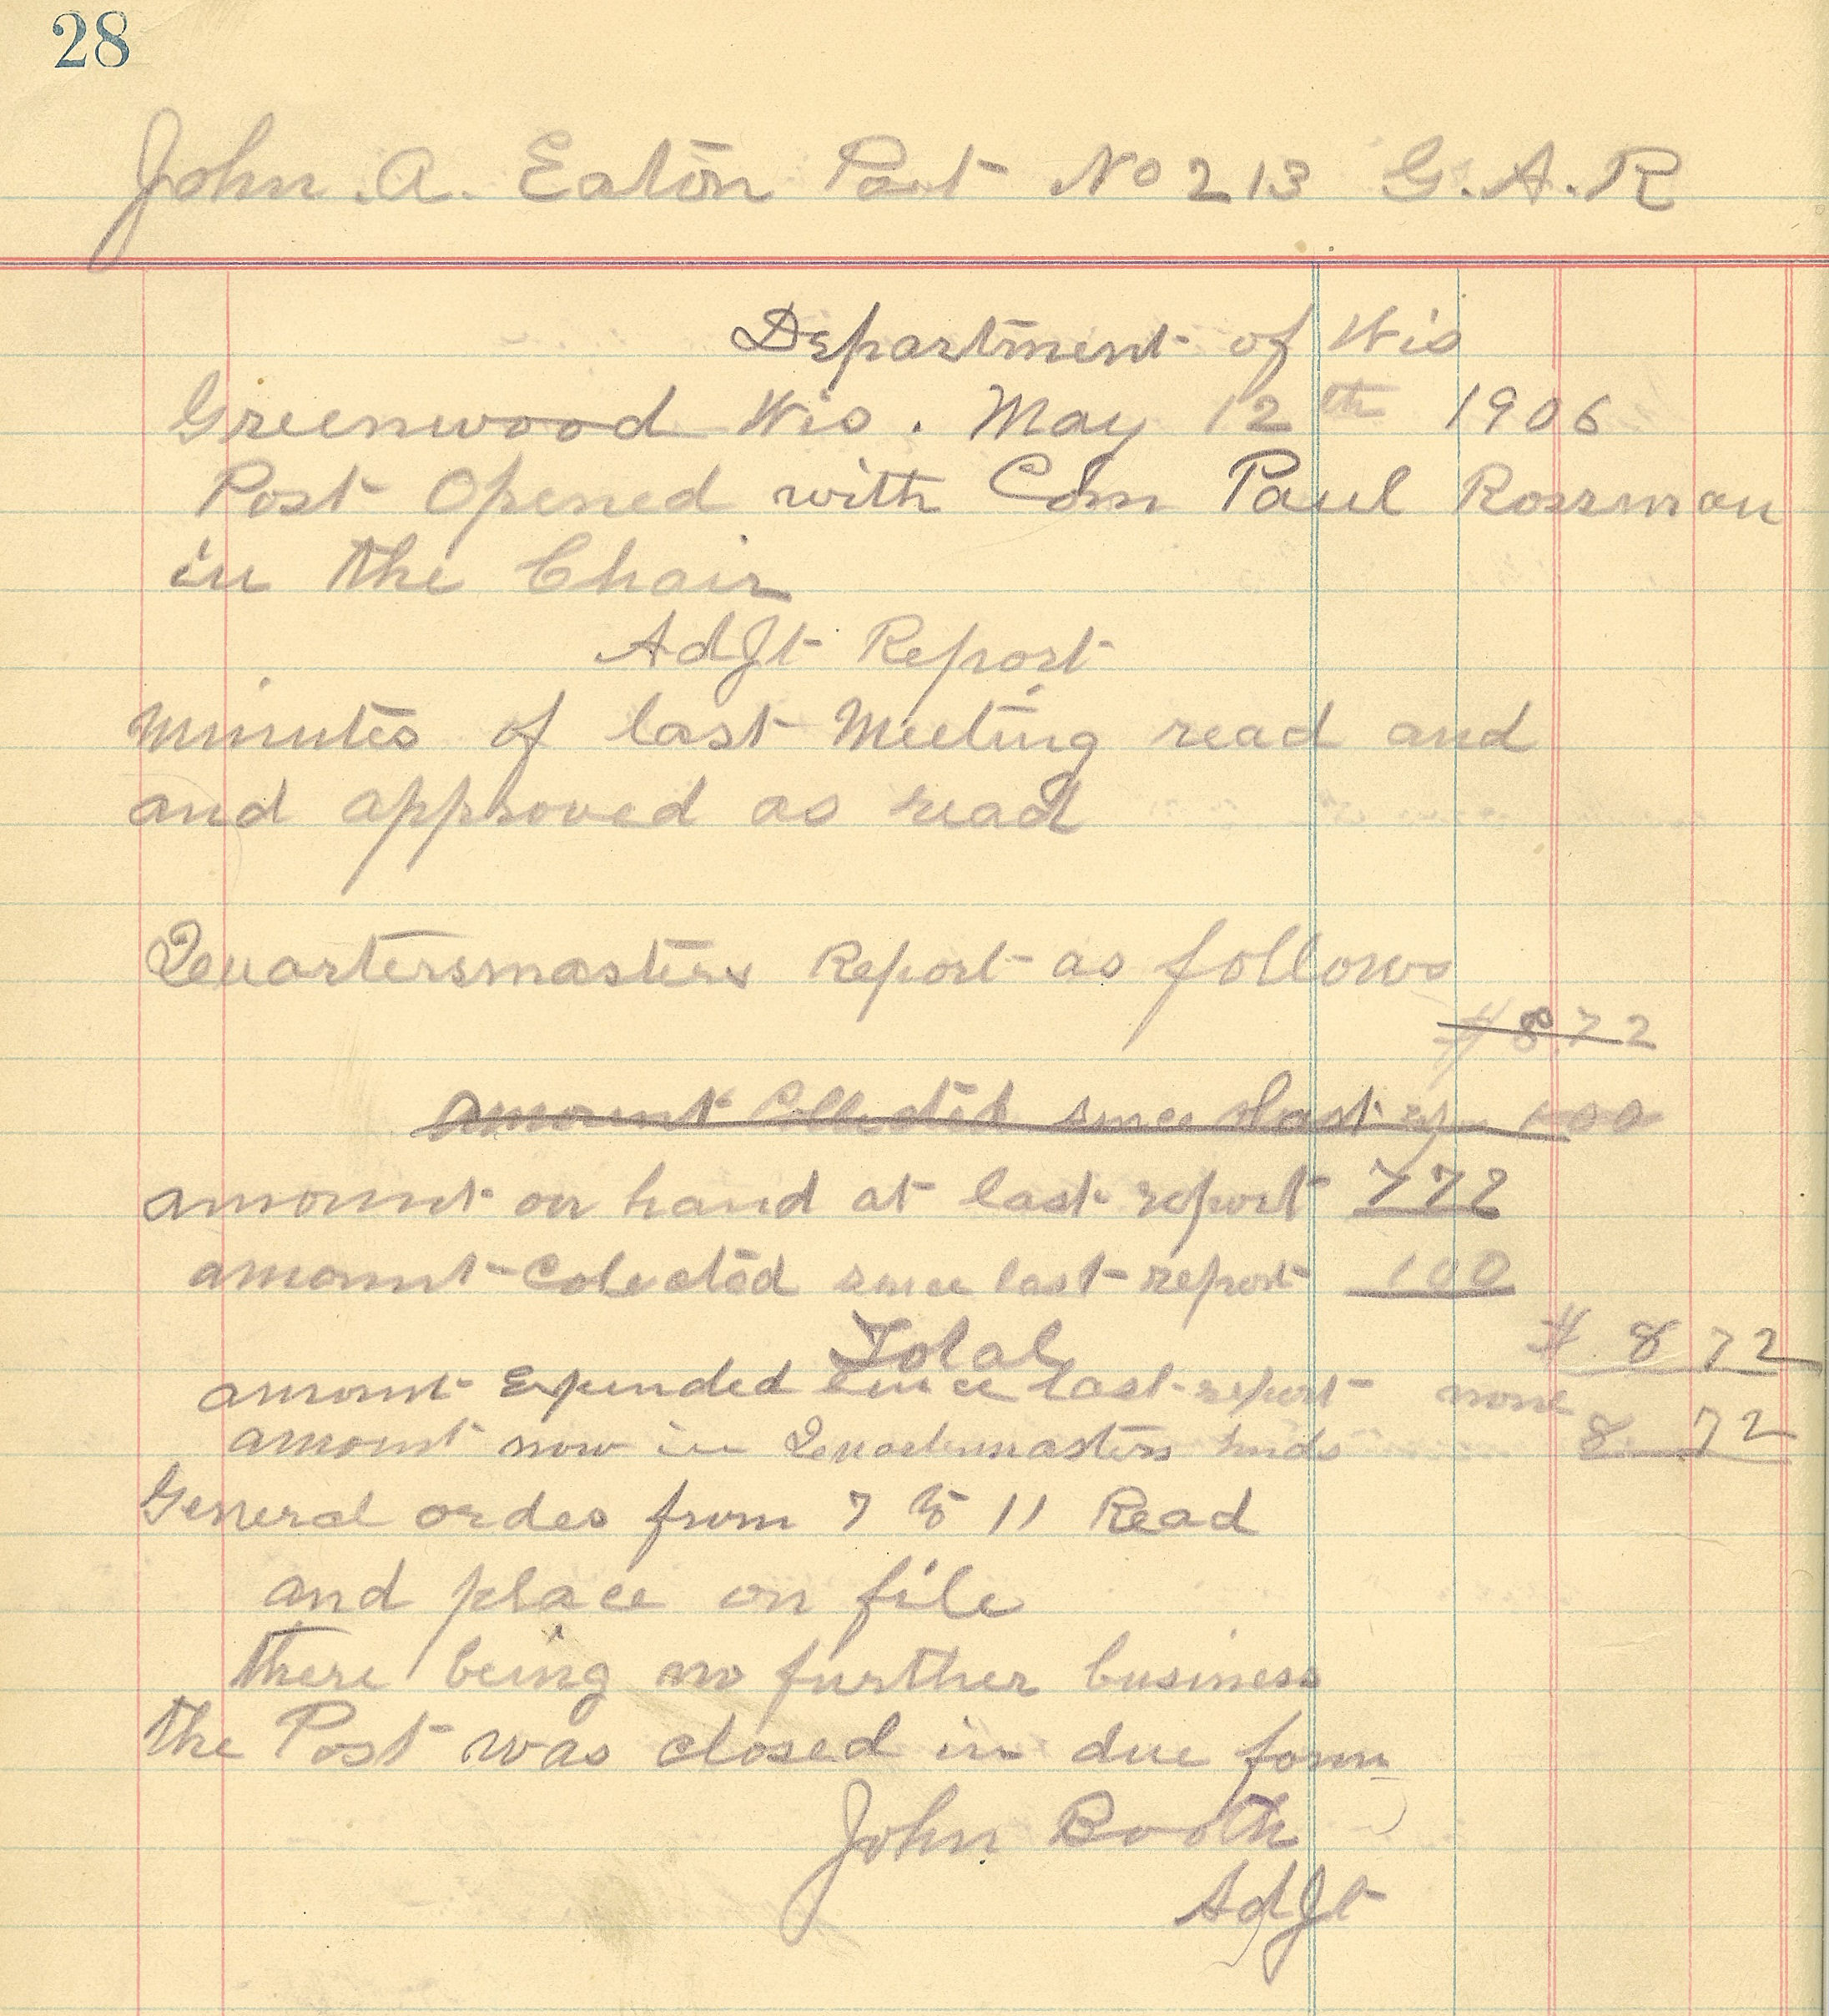 28
John . A. Eaton Post No 213 G. A. R
Department of Wis
Greenwood Wis . May 12th 1906
Post Opened with Com Paul Rossman
in the Chair
AdJt Report
Minutes of last Meeting read and
and approved as read
Quartersmasters Report as follows
$ 8.72
amount Collected since last rep 100
amount on hand at last report 772
amount Colected since last report 100
Total $ 8 72
amount Expended since last report none
amount now in Quartermasters hands 8 72
General ordes from 7 to 11 Read
and place on file
there being no further business
the Post was closed in due form
John Booth
AdJt